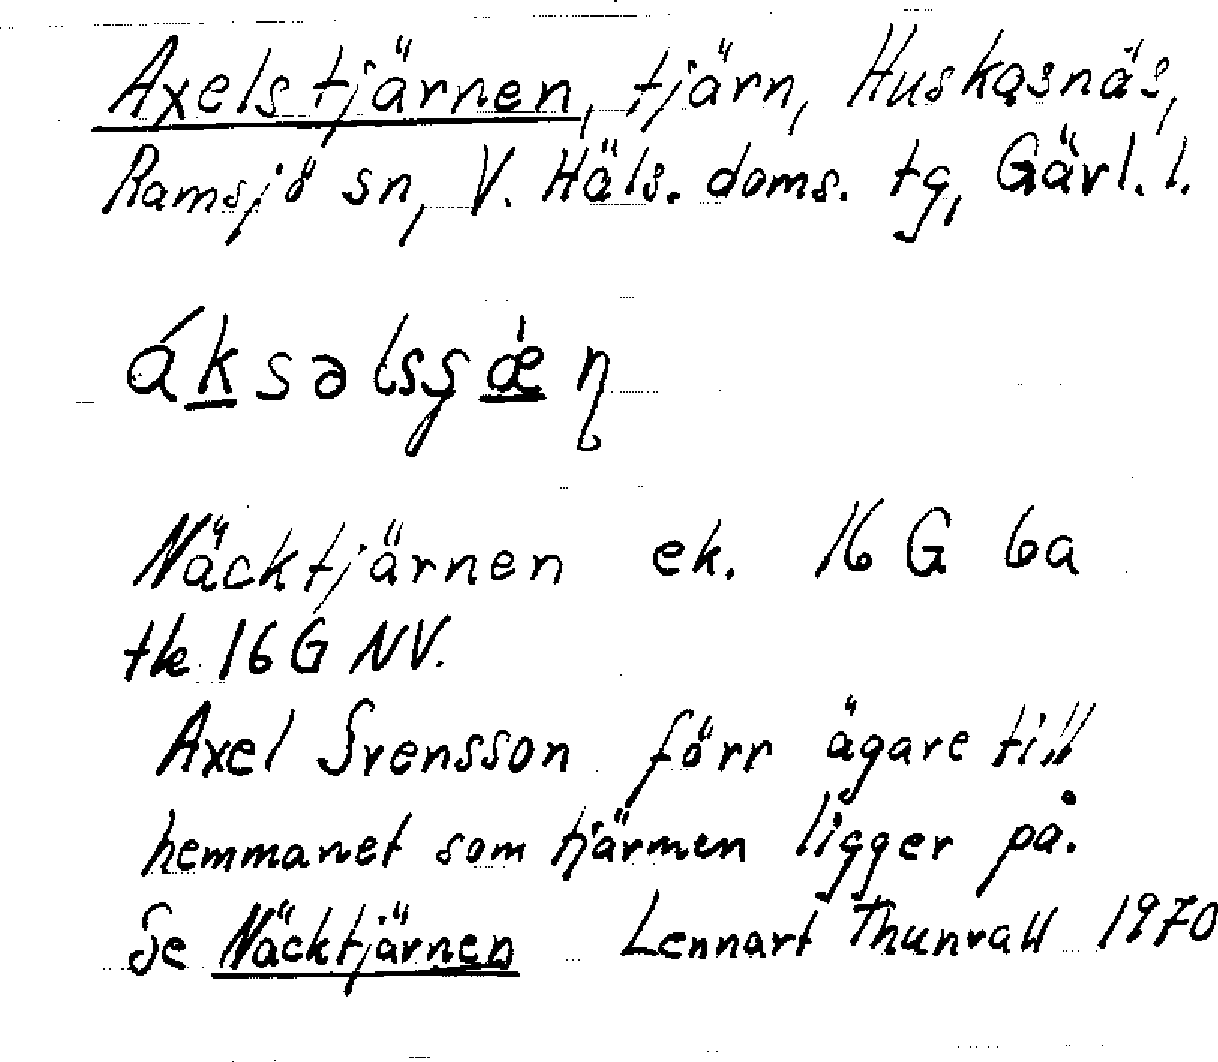 Axelstjärnen, tjärn, Huskasnäs,
Ramsjö sn, V. Häls. doms. tg, Gävl. l.
áksəlsʂæ̀ɳ
Näcktjärnen ek. 16 G 6a
tk 16 G NV.
Axel Svensson förr ägare till
hemmanet som tjärmen ligger på.
Se Näcktjärnen Lennart Thunvall 1970